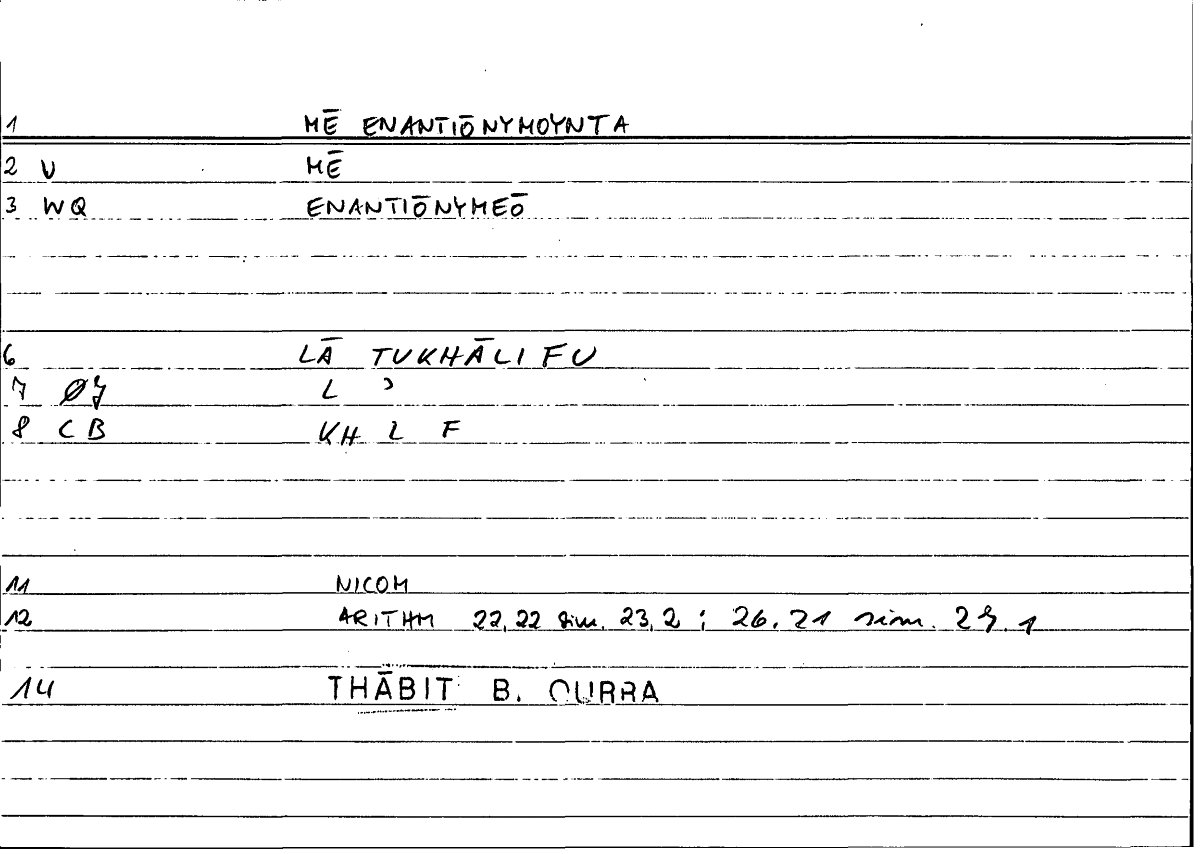 1 MĒ ENANTIŌNYMOYNTA
2 V MĒ
3 WQ ENANTIŌNYMEŌ
6 LĀ TUKHĀLIFU
7 ØJ L ʾ
8 CB KH L F
11 NICOM
12 ARITHM 22,22 sim. 23,2 ; 26.21 sim. 27.1
14 THĀBIT B. QURRA